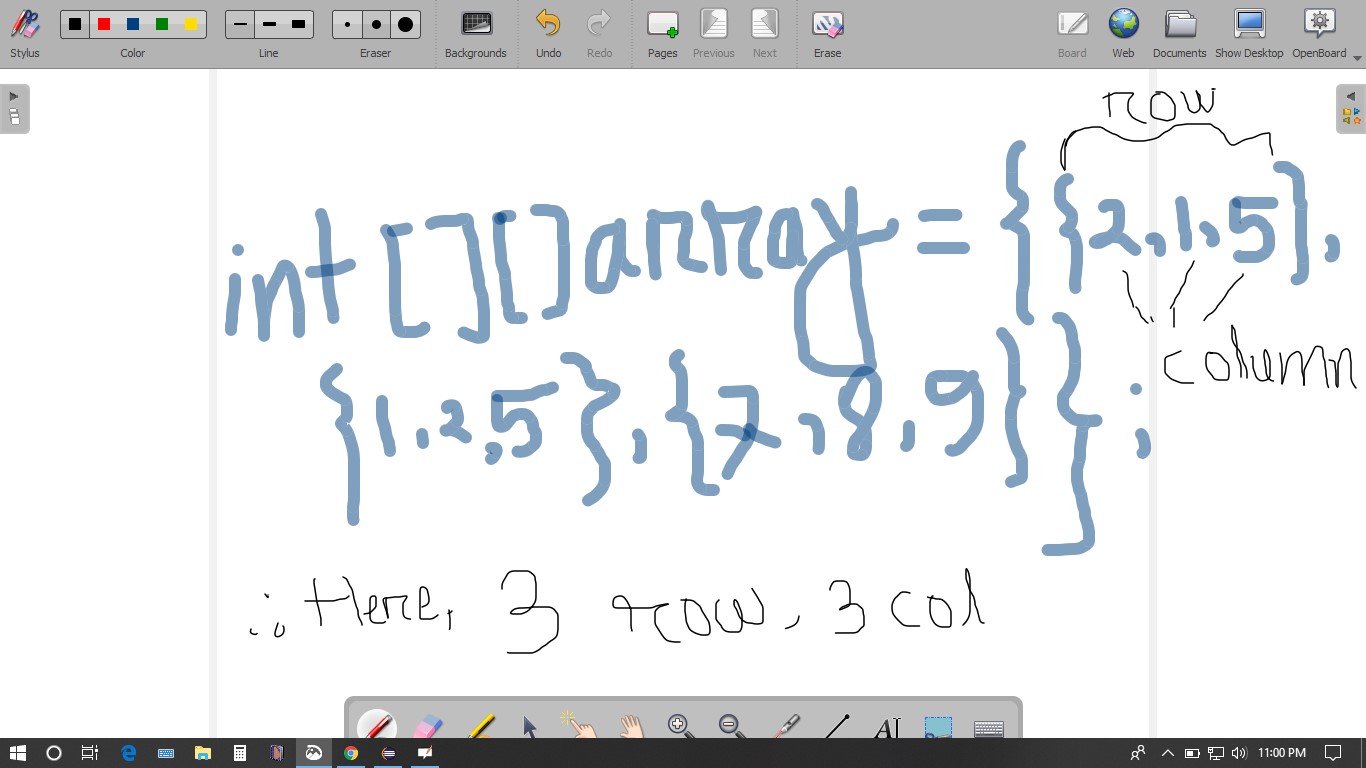 Stylus Color Line Eraser Backgrounds Undo Redo Pages Previous Next Erase Board Web Documents Show Desktop OpenBoard
row
int[][]array = {{2,1,5},
column
{1,2,5},{7,8,9}};
∴ Here, 3 row, 3 col
11:00 PM